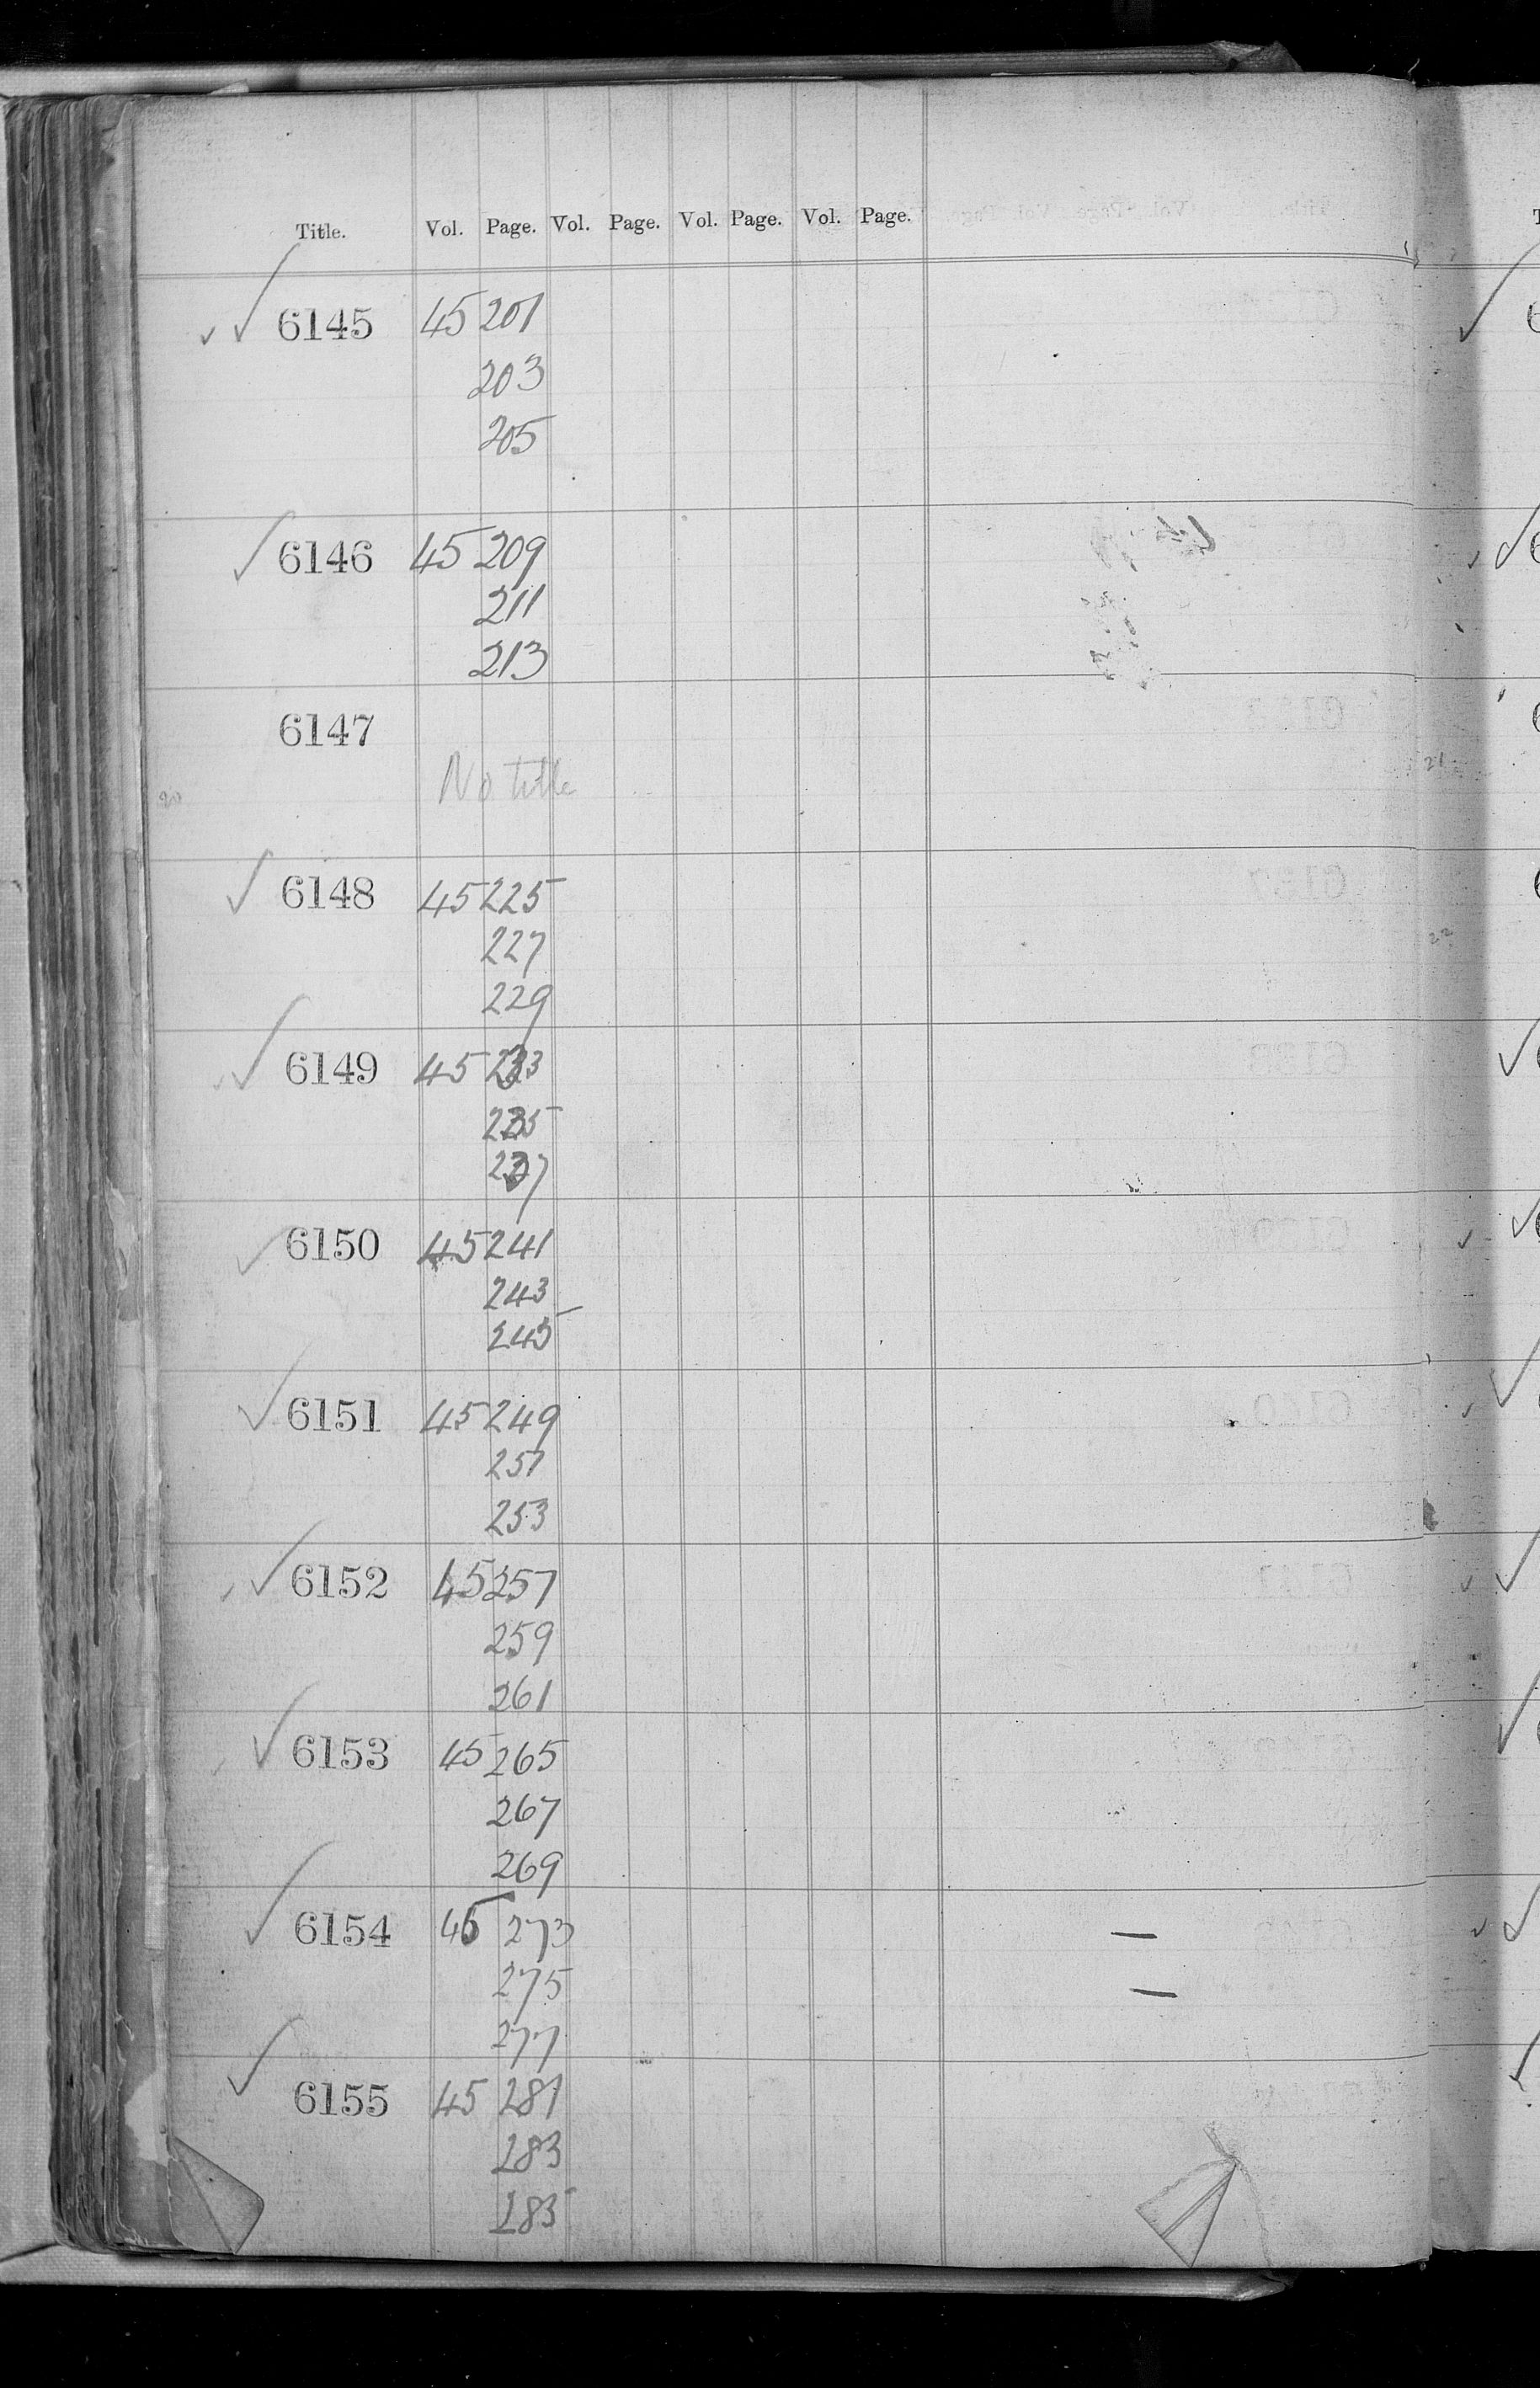 Title. Vol. Page. Vol. Page. Vol. Page. Vol. Page.
6145 45 201
203
205
6146 45 209
211
213
6147
No title
20
6148 45 225
227
229
6149 45 233
235
237
6150 45 241
243
245
6151 45 249
251
253
6152 45 257
259
261
6153 45 265
267
269
6154 45 273
275
277
6155 45 281
283
285
21
22